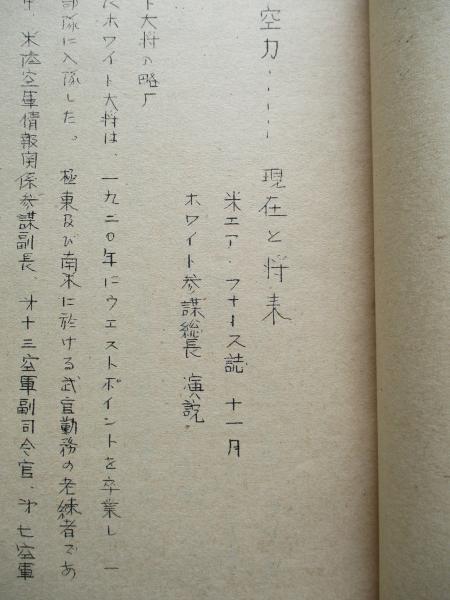 空力‥‥‥ 現在と将来
米エア・フォース誌 十一月
ホワイト参謀総長 演説
ト大将の略厂
ホワイト大将は、一九二〇年にウエストポイントを卒業し、一
部隊に入隊した。 極東及び南米に於ける武官勤務の老練者であ
米陸空軍情報関係参謀副長、才十三空軍副司令官、才七空軍